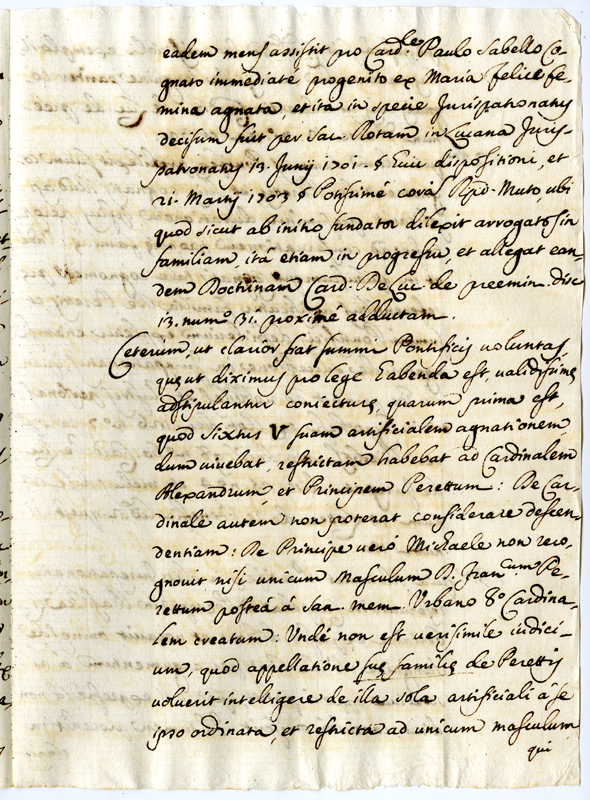 eadem mens assistit pro Card.le Paulo Sabello Co-
gnato immediate progenito ex Maria felice fe-
mina agnata, et ita in specie Jurispatronatus
decisum fuit per Sac. Rotam in Lucana Juris-
patronatus 13. Junij 1701. § Huic dispositioni, et
Martij 1703 § Potissimé coràm Rpd. Muto, ubi
quod sicut ab initio fundator dilexit arrogatos in
familiam, itá etiam in progressu, et allegat ean-
dem Doctrinam Card. De Luc. de preemin. disc
13. num.º 31. proximé adductam.
Ceterum, ut clarior fiat summi Pontificis voluntas
quę ut diximus pro lege habenda est, validissimę
adstipulantur coniecturę, quarum prima est,
quod Sixtus V suam artificialem agnationem
dum uiuebat, restrictam habebat ad Cardinalem
Alexandrum, et Principem Perettum: De Car-
dinale autem non poterat considerare descen-
dentiam: De Principe veró Michaele non reco-
gnouit nisi unicum Masculum D. Fran.cum Pe-
rettum posteá á San. mem. Urbano 8.º Cardina-
lem creatum: Undé non est verisimile iudici-
um, quod appellatione suę familię de Perettis
voluerit intelligere de illa sola artificiali á se
ipso ordinata, et restricta ad unicum masculum
qui